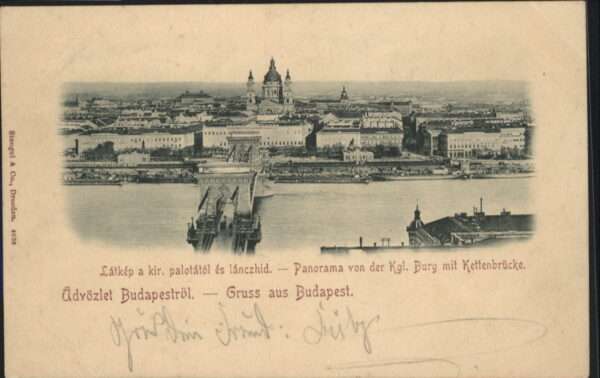 Stengel & Co., Dresden. 4628
Látkép a kir. palotától és lánczhid. — Panorama von der Kgl. Burg mit Kettenbrücke.
Üdvözlet Budapestről. — Gruss aus Budapest.
Dein Freund: